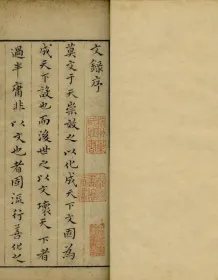 文錄序
莫文于天崇效之以化成天下文固為
成天下設也而後世之以文壞天下者
過半矣非以文也者固流行善化之